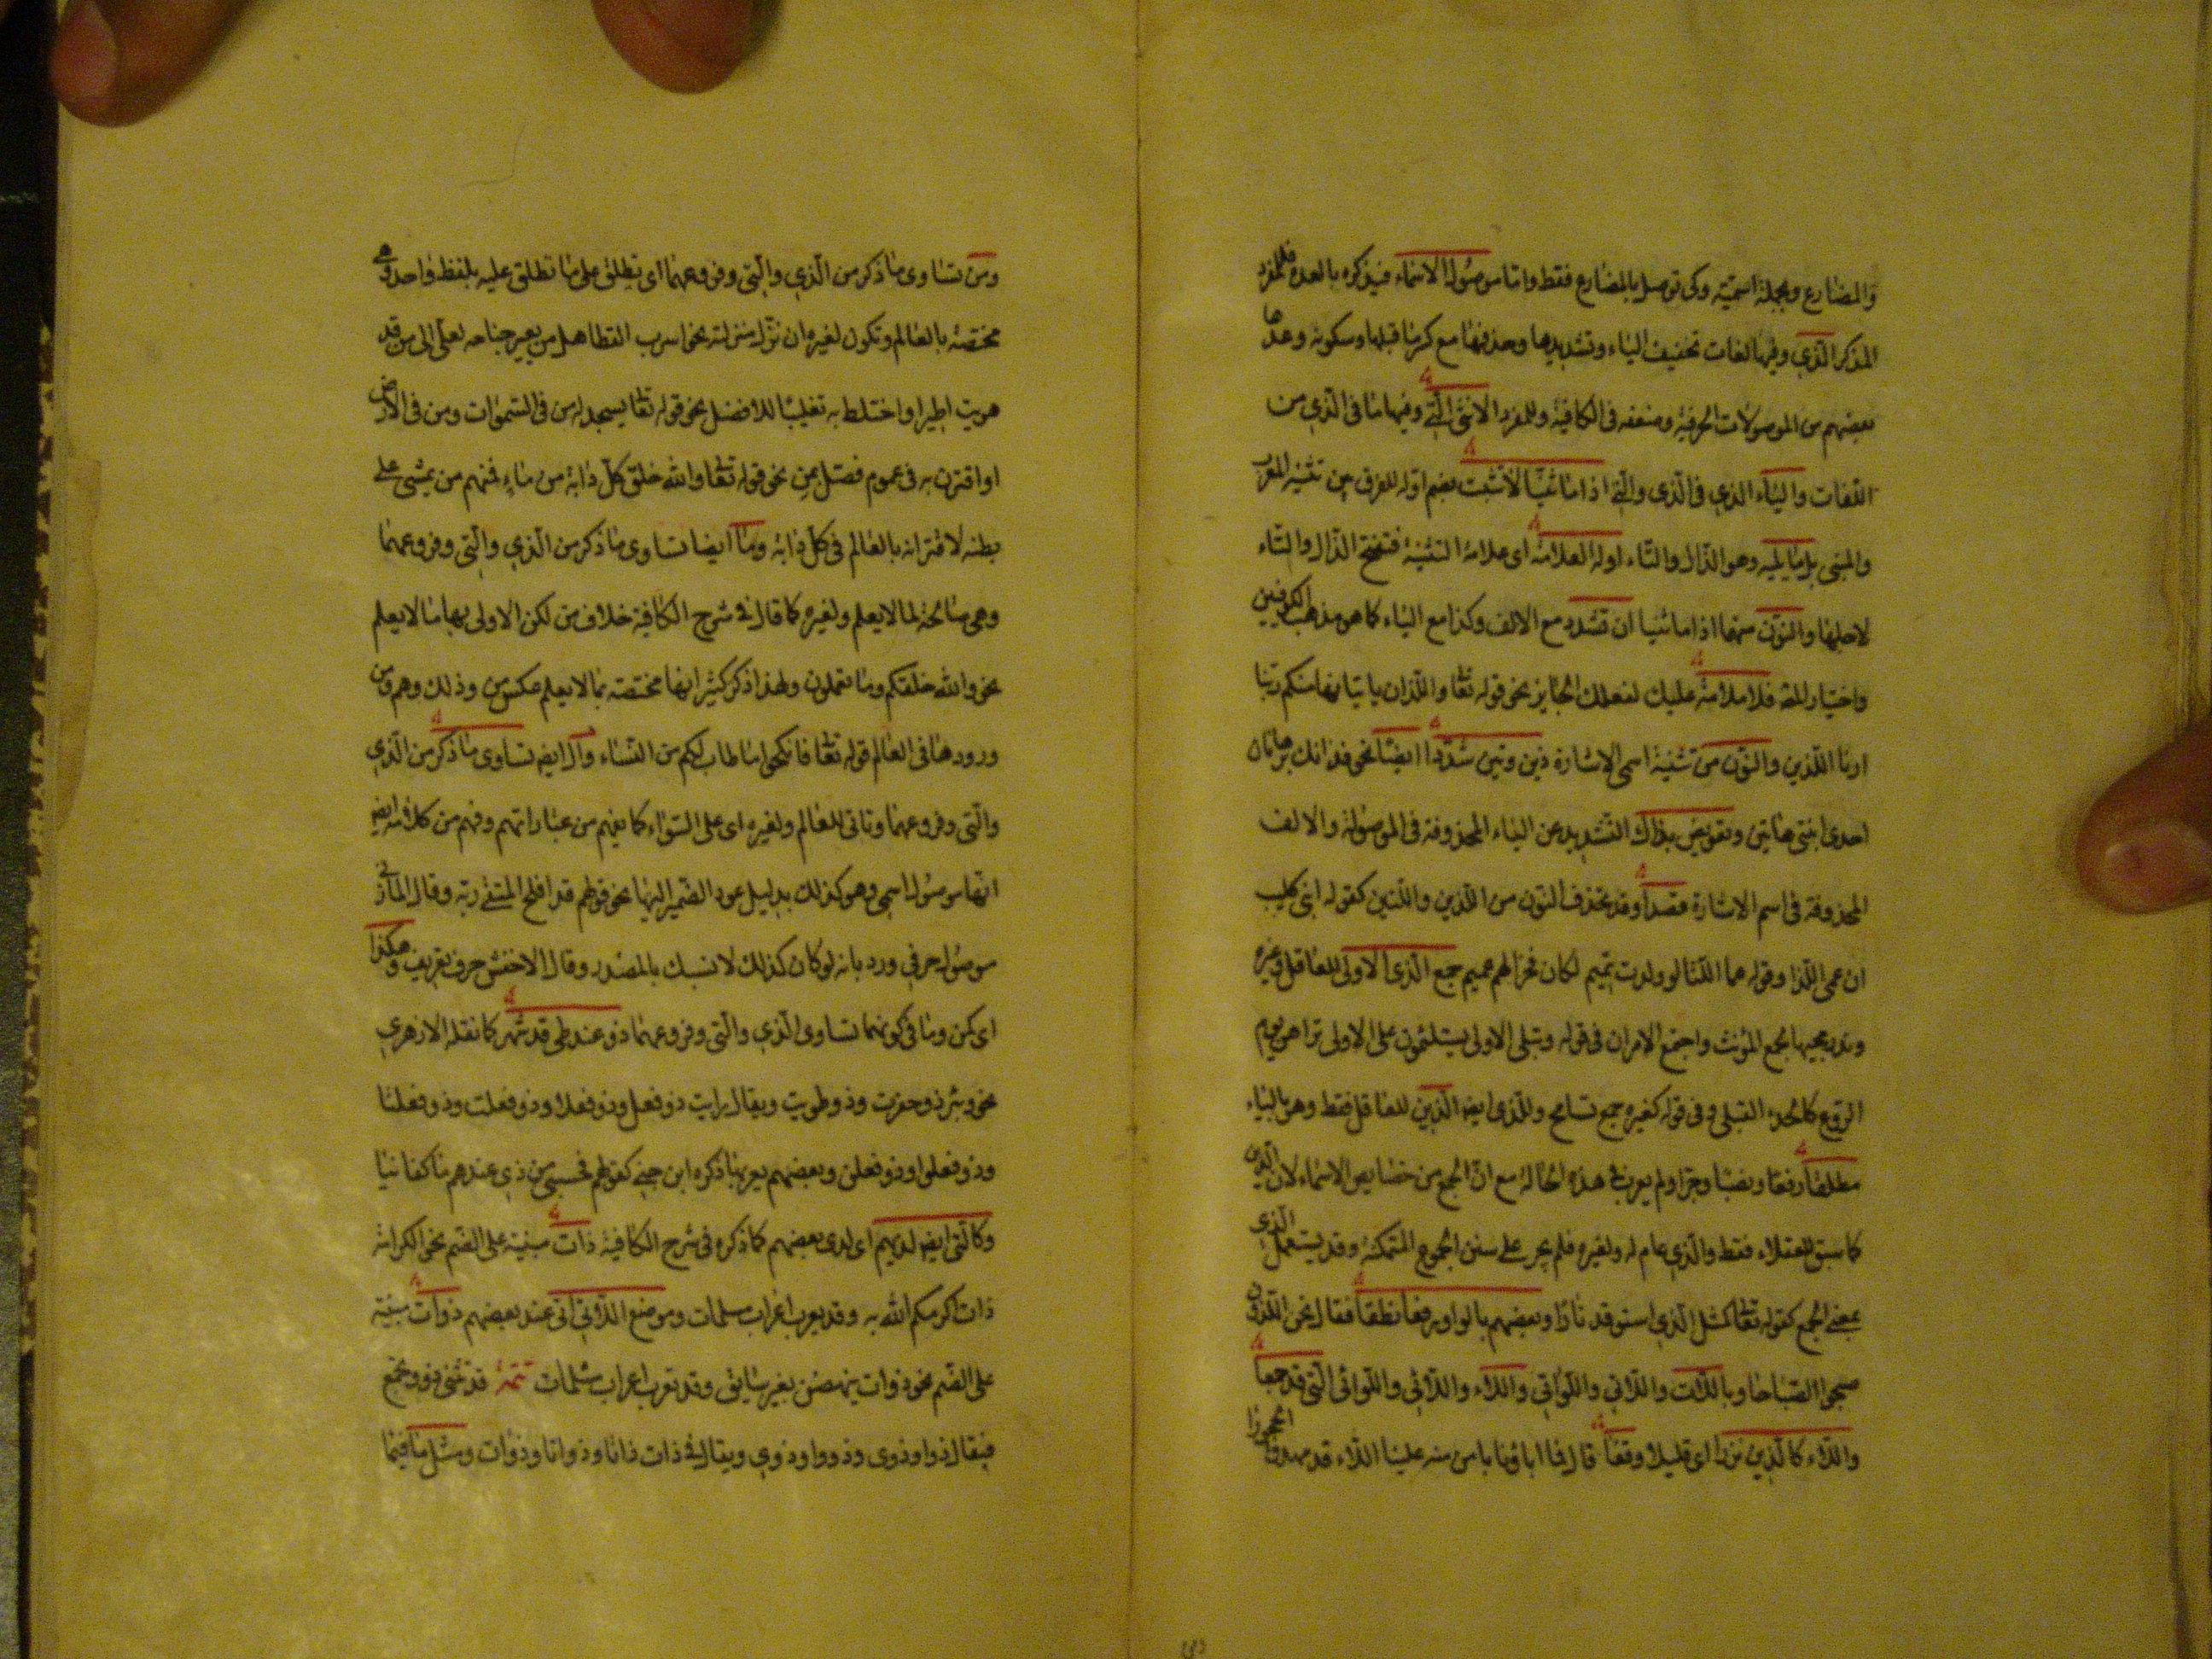 والمضارع وبجملة اسمية وكى توصل بالمضارع فقط واما موصول الاسماء فيذكره بالعده فللمفرد
المذكر الّذي وفيها لغات تخفيف الياء وتشديدها وحذفها مع كسر ما قبلها وسكونه وعدها
بعضهم من الموصولات الحرفية وضعفه فى الكافية وللمفرد الانثى الّتي وفيها ما فى الّذي من
اللغات والياء الذي فى الّذي والّتي اذا ما ثنّيا لا تثبت بضم اوله للفرق بين تثنية المعرب
والمبنى بل ما يليه وهو الذّال والتّاء اوله العلامة اى علامة التثنية فتفتح الذّال والتّاء
لاجلها والنّون منهما اذا ما ثنيا ان تشدد مع الالف وكذا مع الياء كما هو مذهب الكوفيين
واختيار المصّ فلا ملامة عليك لفعلك الجايز نحو قوله تعا واللّذان ياتيانها منكم ربّنا
ارنا اللّذين والنّون من تثنية اسمى الاشارة ذين وتين شدّدا ايضًا نحو فذانك برهانان
احدى ابنتى هاتين وتعويض بذاك التّشديد عن الياء المحذوفة فى الموصولة والالف
المحذوفة فى اسم الاشارة قصدا وقد تحذف النّون من اللّذين واللّتين كقوله ابنى كليب
ان عمى اللّذا وقوله هما اللّتا لو ولدت تميم لكان فخر لهم صميم جمع الّذى الاولى للعاقل وغيره
وندر مجيها لجمع المؤنث واجتمع الامران فى قوله وتبلى الاولى يستلئمون على الاولى تراهن يوم
الرّوع كالحدء القبل وفى قوله كغيره جمع تسامح وللّذى ايضا الّذين للعاقل فقط وهو بالياء
مطلقًا رفعًا ونصبًا وجرّا ولم يعرب فى هذه الحالة مع انّ الجمع من خصايص الاسماء لانّ الّذين
كما سبق للعقلاء فقط والّذي عام له ولغيره فلم يجر على سنن الجموع المتمكنة وقد يستعمل الّذى
بمعنى الجمع كقوله تعا كمثل الّذي استوقد نارًا وبعضهم بالواو رفعا نطقا فقال نحن اللّذون
صبحوا الصّباحا وباللّات واللّاتي واللّواتي واللّاء واللّائي واللّوائي الّتي قد جمعا
واللّاء كالّذين نزرا اى قليلا وقعا قال فما اباؤنا بامن منه علينا اللّاء قد مهدوا الحجورا
ومن تساوى ما ذكر من الّذي والّتي وفروعهما اى تطلق على ما تطلق عليه بلفظ واحد وهى
مختصّة بالعالم وتكون لغيره ان نزّل منزلته نحو اسرب القطا هل من يعير جناحه لعلّى الى من قد
هويت اطير او اختلط به تغليبًا للافضل نحو قوله تعا يسجد له من فى السّموات ومن فى الارض
او اقترن به فى عموم فصل بمن نحو قوله تعا والله خلق كلّ دابة من ماء فمنهم من يمشى على
بطنه لاقترانه بالعالم فى كلّ دابة وما ايضا تساوى ما ذكر من الّذي والّتي وفروعهما
وهى صالحة لما لا يعلم ولغيره كما قال فى شرح الكافية خلاف من لكن الاولى بها ما لا يعلم
نحو والله خلقكم وما تعملون ولهذا ذكر كثير انها مختصّة بما لا يعلم عكس من وذلك وهم ومن
ورودها فى العالم قوله تعا فانكحوا ما طاب لكم من النّساء وال ايضا تساوى ما ذكر من الّذي
والّتي وفروعهما وتاتى للعالم ولغيره اى على السّواء كما يفهم من عباراتهم وفهم من كلامه ايضا
انّها موصول اسمى وهو كذلك بدليل عود الضّمير اليها نحو قولهم قد افلح المتّقي ربّه وقال المازنى
موصول حرفي ورد بانه لو كان كذلك لانسبك بالمصدر وقال الاخفش حرف تعريف وهكذا
اى كمن وما فى كونها تساوى الّذي والّتي وفروعهما ذو عند طى قد شهر كما نقله الازهري
نحو وبئرى ذو حفرت وذو طويت ويقال رايت ذو فعل وذو فعلا وذو فعلت وذو فعلتا
وذو فعلوا وذو فعلن وبعضهم يعربها ذكره ابن جنى كقولهم فحسبى من ذي عندهم ما كفانيا
وكالّتي ايضا لديهم اى لدى بعضهم كما ذكره فى شرح الكافية ذات مبنية على الضّم نحو والكرامة
ذات اكرمكم الله به وقد يعرب اعراب مسلمات وموضع اللّاتى اتى عند بعضهم ذوات مبنية
على الضّم نحو ذوات ينهضن بغير سايق وقد تعرب اعراب مسلمات تتمّة قد تثنى ذو وتجمع
فيقال ذوا وذوى وذووا وذوي ويقال فى ذات ذاتا وذواتا وذوات ومثل ما فيما